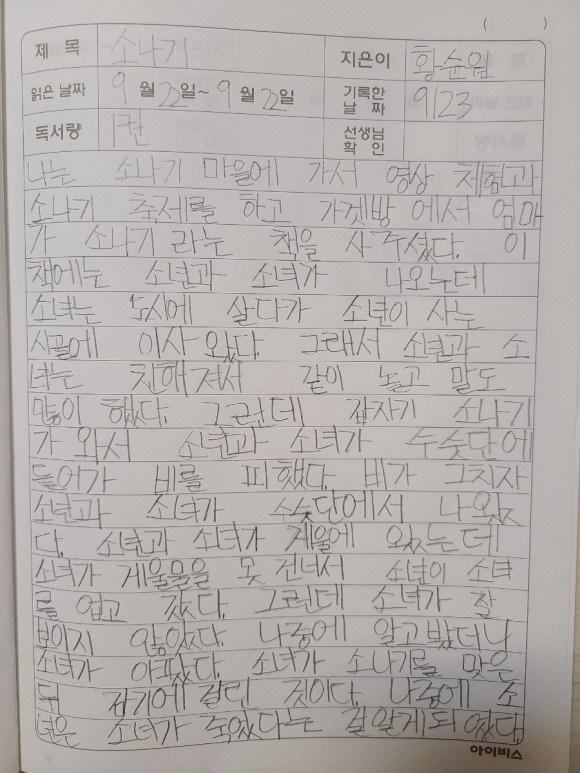 ( )
제 목 소나기 지은이 황순원
읽은 날짜 9월 22일~ 9월 22일 기록한 날 짜 9/23
독서량 1권 선생님 확 인
나는 소나기 마을에 가서 영상 체험과
소나기 축제를 하고 가겟방 에서 엄마
가 소나기 라는 책을 사 주셨다. 이
책에는 소년과 소녀가 나오는데
소녀는 도시에 살다가 소년이 사는
시골에 이사 왔다. 그래서 소년과 소
녀는 친해 져서 같이 놀고 말도
많이 했다. 그런데 갑자기 소나기
가 와서 소년과 소녀가 수숫단에
들어가 비를 피했다. 비가 그치자
소년과 소녀가 수숫단에서 나왔
다. 소년과 소녀가 개울에 왔는데
소녀가 개울물을 못 건너서 소년이 소녀
를 업고 갔다. 그런데 소녀가 잘
보이지 않았다. 나중에 알고 봤더니
소녀가 아팠다. 소녀가 소나기를 맞은
뒤 감기에 걸린 것이다. 나중에 소
년은 소녀가 죽었다는 걸 알게 되 었다.
아이비스